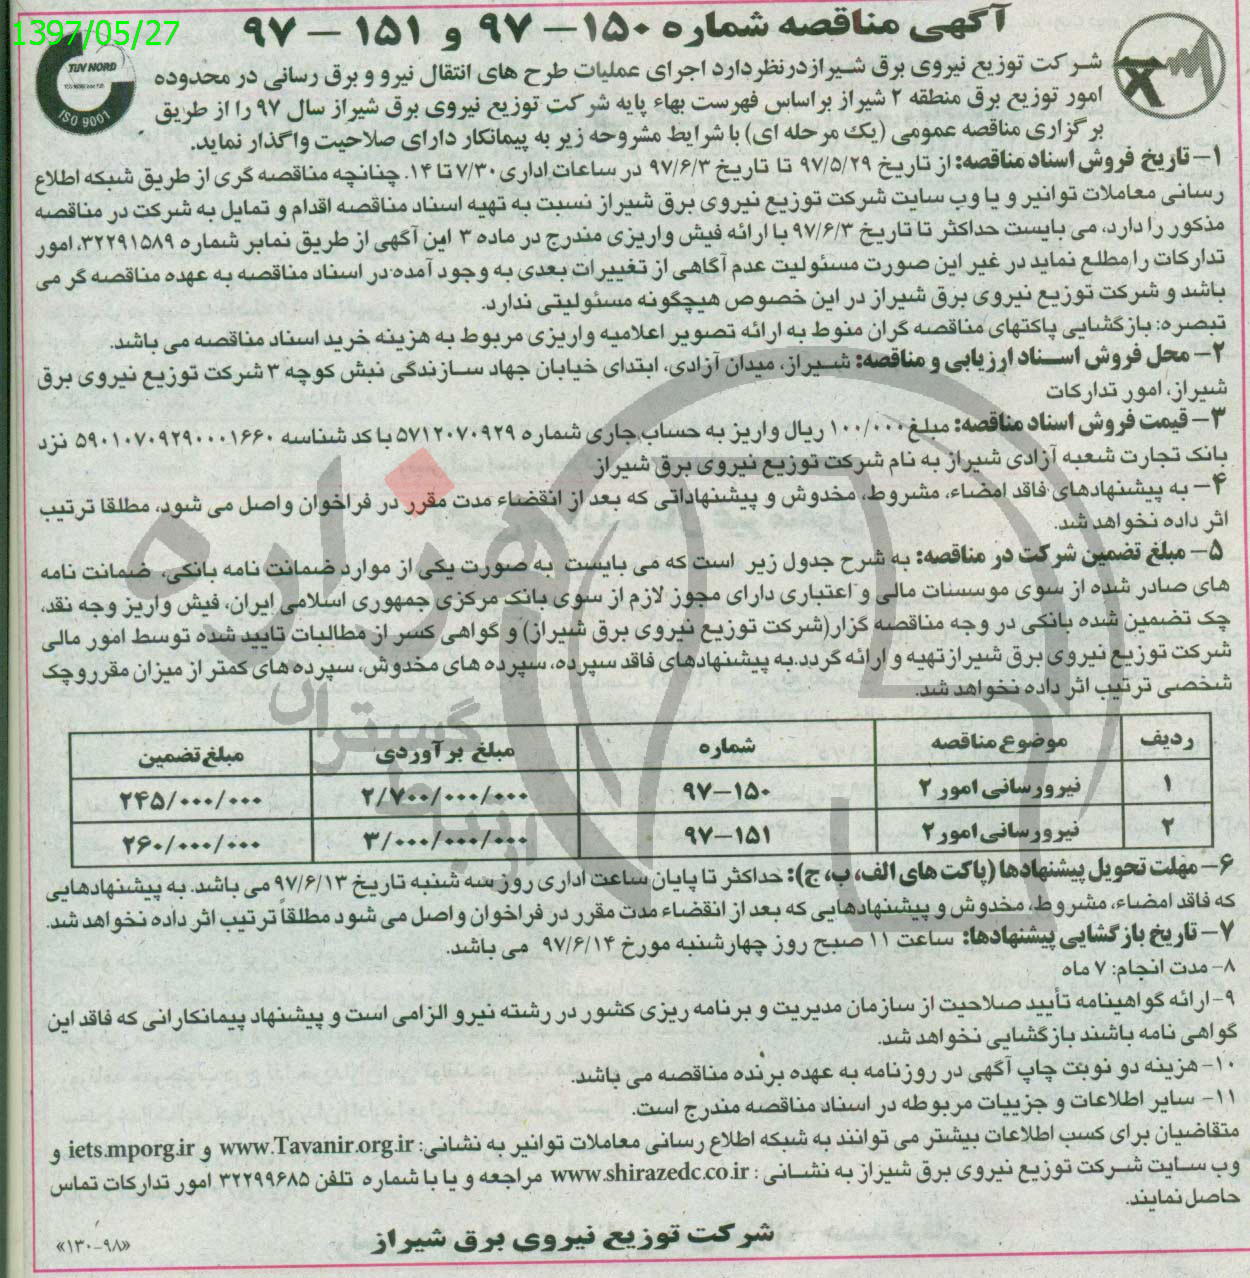 1397/05/27
آگهی مناقصه شماره ۱۵۰-۹۷ و ۱۵۱-۹۷
TUV NORD
ISO 9001
شرکت توزیع نیروی برق شیراز درنظر دارد اجرای عملیات طرح های انتقال نیرو و برق رسانی در محدوده
امور توزیع برق منطقه ۲ شیراز براساس فهرست بهاء پایه شرکت توزیع نیروی برق شیراز سال ۹۷ را از طریق
برگزاری مناقصه عمومی (یک مرحله ای) با شرایط مشروحه زیر به پیمانکار دارای صلاحیت واگذار نماید.
۱- تاریخ فروش اسناد مناقصه: از تاریخ ۹۷/۵/۲۹ تا تاریخ ۹۷/۶/۳ در ساعات اداری ۷/۳۰ تا ۱۴. چنانچه مناقصه گری از طریق شبکه اطلاع
رسانی معاملات توانیر و یا وب سایت شرکت توزیع نیروی برق شیراز نسبت به تهیه اسناد مناقصه اقدام و تمایل به شرکت در مناقصه
مذکور را دارد، می بایست حداکثر تا تاریخ ۹۷/۶/۳ با ارائه فیش واریزی مندرج در ماده ۳ این آگهی از طریق نمابر شماره ۳۲۲۹۱۵۸۹، امور
تدارکات را مطلع نماید در غیر این صورت مسئولیت عدم آگاهی از تغییرات بعدی به وجود آمده در اسناد مناقصه به عهده مناقصه گر می
باشد و شرکت توزیع نیروی برق شیراز در این خصوص هیچگونه مسئولیتی ندارد.
تبصره: بازگشایی پاکتهای مناقصه گران منوط به ارائه تصویر اعلامیه واریزی مربوط به هزینه خرید اسناد مناقصه می باشد.
۲- محل فروش اسناد ارزیابی و مناقصه: شیراز، میدان آزادی، ابتدای خیابان جهاد سازندگی نبش کوچه ۳ شرکت توزیع نیروی برق
شیراز، امور تدارکات
۳- قیمت فروش اسناد مناقصه: مبلغ ۱۰۰/۰۰۰ ریال واریز به حساب جاری شماره ۵۷۱۲۰۷۰۹۲۹ با کد شناسه ۵۹۰۱۰۷۰۹۲۹۰۰۰۱۶۶۰ نزد
بانک تجارت شعبه آزادی شیراز به نام شرکت توزیع نیروی برق شیراز
۴- به پیشنهادهای فاقد امضاء، مشروط، مخدوش و پیشنهاداتی که بعد از انقضاء مدت مقرر در فراخوان واصل می شود، مطلقا ترتیب
اثر داده نخواهد شد.
۵- مبلغ تضمین شرکت در مناقصه: به شرح جدول زیر است که می بایست به صورت یکی از موارد ضمانت نامه بانکی، ضمانت نامه
های صادر شده از سوی موسسات مالی و اعتباری دارای مجوز لازم از سوی بانک مرکزی جمهوری اسلامی ایران، فیش واریز وجه نقد،
چک تضمین شده بانکی در وجه مناقصه گزار(شرکت توزیع نیروی برق شیراز) و گواهی کسر از مطالبات تایید شده توسط امور مالی
شرکت توزیع نیروی برق شیراز تهیه و ارائه گردد. به پیشنهادهای فاقد سپرده، سپرده های مخدوش، سپرده های کمتر از میزان مقرر و چک
شخصی ترتیب اثر داده نخواهد شد.
ردیف موضوع مناقصه شماره مبلغ برآوردی مبلغ تضمین
۱ نیرورسانی امور ۲ ۹۷-۱۵۰ ۲/۷۰۰/۰۰۰/۰۰۰ ۲۴۵/۰۰۰/۰۰۰
۲ نیرورسانی امور ۲ ۹۷-۱۵۱ ۳/۰۰۰/۰۰۰/۰۰۰ ۲۶۰/۰۰۰/۰۰۰
۶- مهلت تحویل پیشنهادها (پاکت های الف، ب، ج): حداکثر تا پایان ساعت اداری روز سه شنبه تاریخ ۹۷/۶/۱۳ می باشد. به پیشنهادهایی
که فاقد امضاء، مشروط، مخدوش و پیشنهادهایی که بعد از انقضاء مدت مقرر در فراخوان واصل می شود مطلقاً ترتیب اثر داده نخواهد شد.
۷- تاریخ بازگشایی پیشنهادها: ساعت ۱۱ صبح روز چهارشنبه مورخ ۹۷/۶/۱۴ می باشد.
۸- مدت انجام: ۷ ماه
۹- ارائه گواهینامه تأیید صلاحیت از سازمان مدیریت و برنامه ریزی کشور در رشته نیرو الزامی است و پیشنهاد پیمانکارانی که فاقد این
گواهی نامه باشند بازگشایی نخواهد شد.
۱۰- هزینه دو نوبت چاپ آگهی در روزنامه به عهده برنده مناقصه می باشد.
۱۱- سایر اطلاعات و جزییات مربوطه در اسناد مناقصه مندرج است.
متقاضیان برای کسب اطلاعات بیشتر می توانند به شبکه اطلاع رسانی معاملات توانیر به نشانی: www.Tavanir.org.ir و iets.mporg.ir و
وب سایت شرکت توزیع نیروی برق شیراز به نشانی : www.shirazedc.co.ir مراجعه و یا با شماره تلفن ۳۲۲۹۹۶۸۵ امور تدارکات تماس
حاصل نمایند.
شرکت توزیع نیروی برق شیراز
«۱۳۰-۹۸»
هزاره
گستران
ارتباط